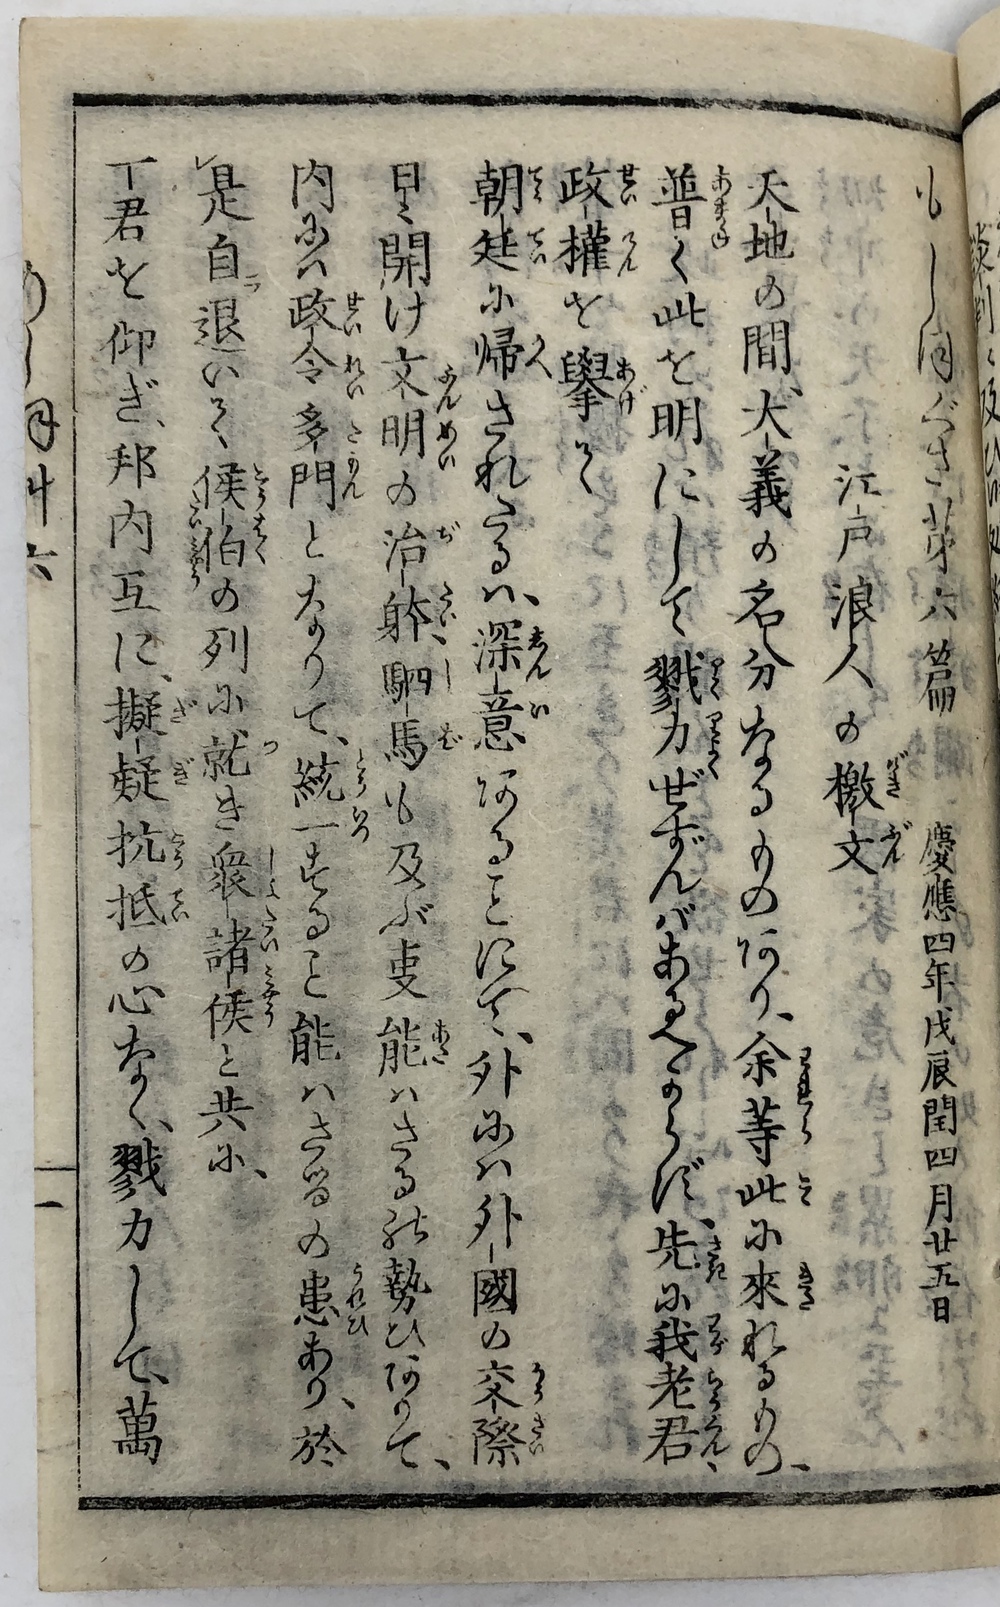 もしほぐさ第六篇 慶應四年戊辰閏四月廿五日
江戸浪人の檄文
天地の間、大義の名分なるものあり、余等此に來れるもの、
普く此を明にして戮力せずんばあるべからず、先に我老君
政權を擧て
朝廷に帰されたるハ、深意あることにて、外にハ外國の交際
日々開け文明の治躰、駟馬も及ぶ事能ハざる的勢ひありて、
内にハ政令多門となりて、統一すること能ハざるの患あり、於
是自退いて侯伯の列に就き衆諸侯と共に、
一君を仰ぎ、邦内互に、擬疑抗抵の心なく、戮力して、萬
もしほ草 六
一